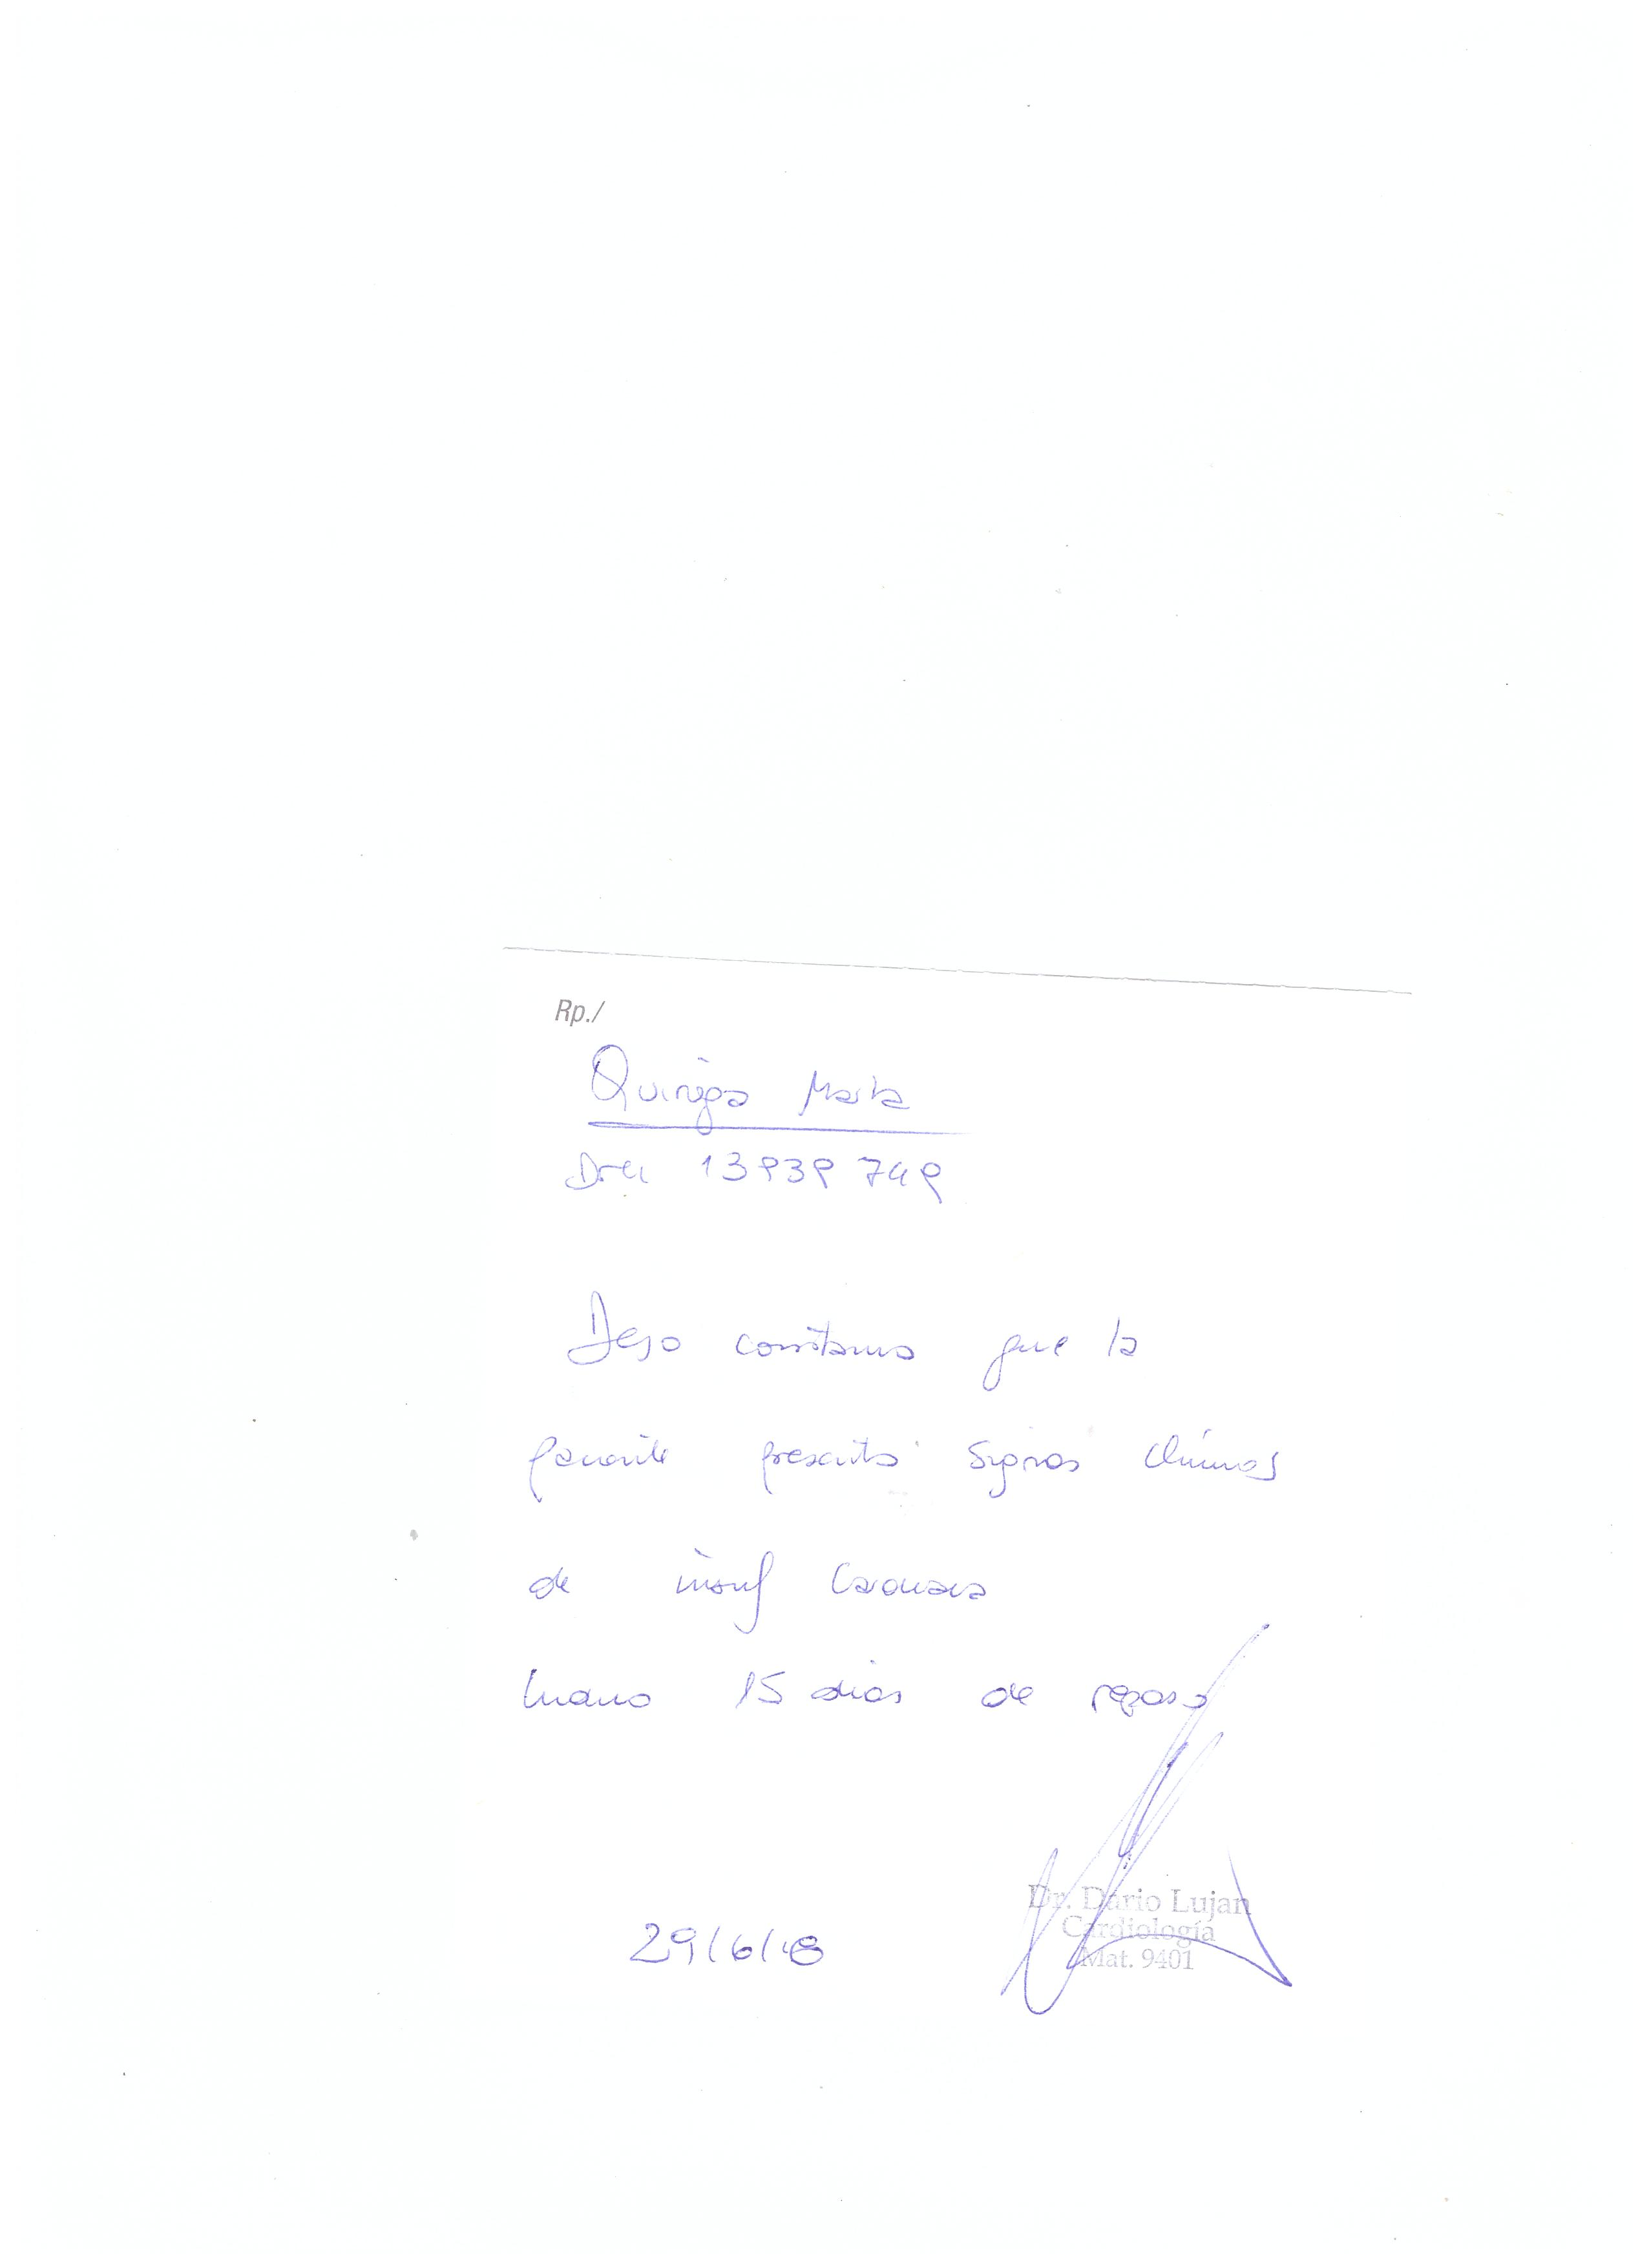 Rp./
Quiroga Marta
DNI 13939749
Dejo constancia que la
paciente presenta signos clínicos
de insuf Cardiaca
Indico 15 dias de reposo
29/6/18
Dr. Dario Lujan
Cardiología
Mat. 9401